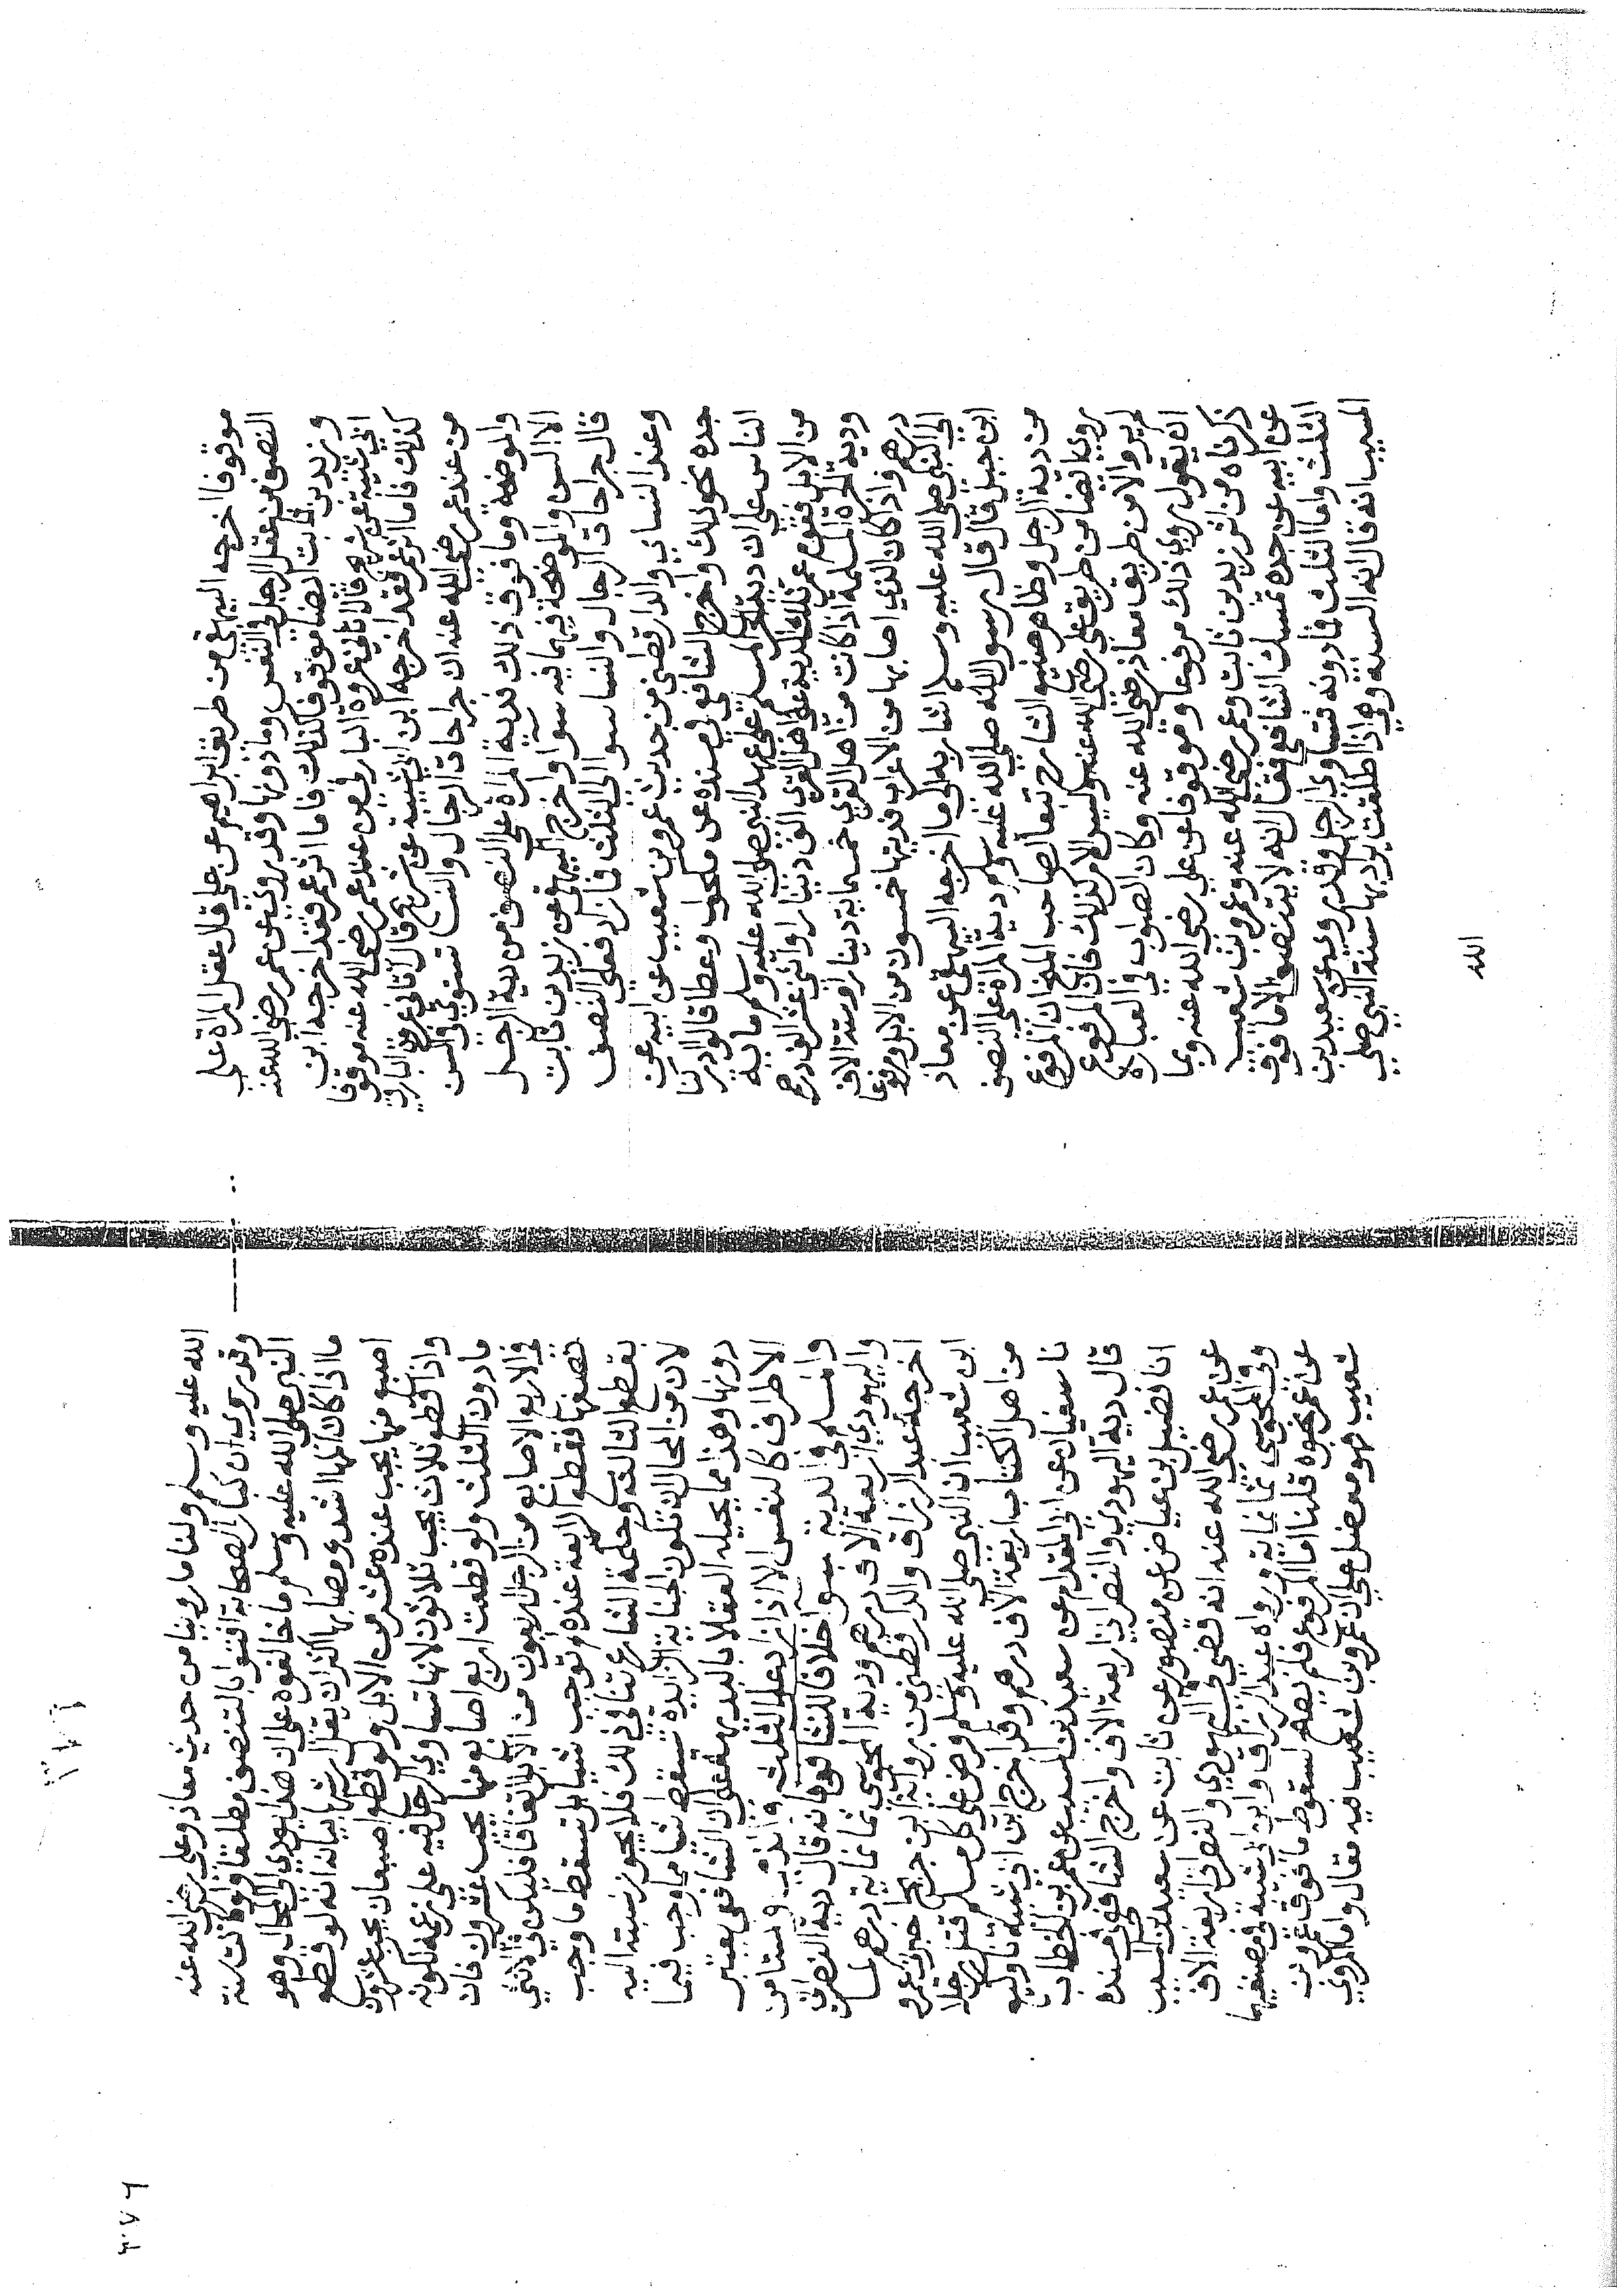 موقوفا اخرجه البيهقي من طريق ابراهيم عن علي قال عقل المراة على
النصف من عقل الرجل في النفس وما دونها وقد روي عن عمر رضي الله عنه
وزيد بن ثابت ايضا موقوفا كذلك فاما اثر عمر فقد اخرجه ابن
ابي شيبة عن شريح قال اتاني عروة البارقي من عند عمر رضي الله عنه موقوفا
كذلك فاما اثر عمر فقد اخرجه ابن ابي شيبة عن شريح قال اتاني عروة البارقي
من عند عمر رضي الله عنه ان جراحات الرجال والنسا تستوي في السن
والموضحة وما فوق ذلك فدية المراة على النصف من دية الرجل
الا السن والموضحة فهما فيه سوا واخرج البيهقي عن زيد بن ثابت
قال جراحات الرجال والنسا سوا الى الثلث فما زاد فعلى النصف
وعند النساي والدارقطني من حديث عمرو بن شعيب عن ابيه عن
جده نحو ذلك واخرج الشافعي في مسنده عن مكحول وعطا قالوا ادركنا
الناس على ان دية الحر المسلم على عهد النبي صلى الله عليه وسلم ماية
من الابل فقوم عمر تلك الدية على اهل القرى الف دينار او اثني عشر الف درهم
ودية الحرة المسلمة اذا كانت من اهل القرى خمسماية دينار او ستة الاف
درهم واذا كان الذي اصابها من الاعراب فديتها خمسون من الابل ومرفوعا
الى النبي صلى الله عليه وسلم اشار به الى ما اخرجه البيهقي عن معاذ
ابن جبل قال قال رسول الله صلى الله عليه وسلم دية المراة على النصف
من دية الرجل وظاهر صنيع الشارح تبعا لصاحب المنح ان المرفوع
روي ايضا من طريق علي رضي الله عنه وليس الامر كذلك فان المرفوع
لم يرو الا من طريق معاذ رضي الله عنه وكان الصواب في العبارة
ان يقول روي ذلك مرفوعا وموقوفا عن علي رضي الله عنه وبما
ذكرناه من اثر زيد بن ثابت وعمر رضي الله عنه وعمرو بن شعيب
عن ابيه عن جده تمسك الشافعي فقال انه لا يتنصف الا ما فوق
الثلث واما الثلث فما دونه فتساوي الرجل وقد روي عن سعيد بن
المسيب انه قال انه السنة وهي اذا اطلقت يراد بها سنة النبي صلى
الله
الله عليه وسلم ولنا ما روينا من حديث معاذ وعلي رضي الله عنه
وقد روي ان كبار الصحابة افتوا بالتنصف مطلقا ولو كانت سنة
النبي صلى الله عليه وسلم ما خالفوه على ان هذا يودي الى المحال وهو
ما اذا كان المها اشد ومصابها اكثر ان يقل ارشها بيانه انه لو قطع
اصبع منها يجب عنده عشر من الابل ولو قطع اصبعان يجب عشرون
واذا قطع ثلاث يجب ثلاثون لانها تساوي الرجل فيه على زعمه لكونه
ما دون الثلث ولو قطعت اربع اصابع منها يجب عشرون فان
في الاربع الاصابع من الرجل اربعون من الابل اتفاقا فيكون في الانثي
نصفها فقطع الرابعة عنده لم توجب شيا بل تسقط ما وجب
بقطع الثالثة وحكمة الشارع تنافي ذلك فلا يجوز نسبته اليه
لان من المحال ان تكون الجناية الزايدة تسقط شيا مما وجب فيما
دونها وهذا مما يحيله العقلا بالبديهة على ان الشافعي يعتبر
الاطراف كالنفس الا اذا زاد على الثلث والذمي ومستامن
والمسلم في الدية سوا خلافا للشافعي فانه قال دية النصراني
واليهودي اربعة الاف درهم ودية المجوسي ثماني ماية درهم لما
اخرجه عبد الرزاق والدارقطني من رواية ابن جريج اخبرني عمرو
ابن شعيب ان النبي صلى الله عليه وسلم فرض على كل مسلم قتل رجلا
من اهل الكتاب اربعة الاف درهم وقد اخرج ابن ابي شيبة نا وكيع
نا سفيان عن ابي المقدام عن سعيد بن المسيب عن عمر بن الخطاب
قال دية اليهودي والنصراني اربعة الاف واخرج الشافعي في مسنده
انا فضيل بن عياض عن منصور عن ثابت عن سعيد بن المسيب
عن عمر رضي الله عنه انه قضى في اليهودي والنصراني اربعة الاف
وفي المجوسي ثماني ماية ورواه عبد الرزاق وابن ابي شيبة في مصنفيهما
عن عمر نحوه قلنا اما المرفوع فلم يصح لسقوط ما فوق عمرو بن
شعيب فهو معضل على ان عمرو بن شعيب فيه مقال واما المروي
٣٧٦